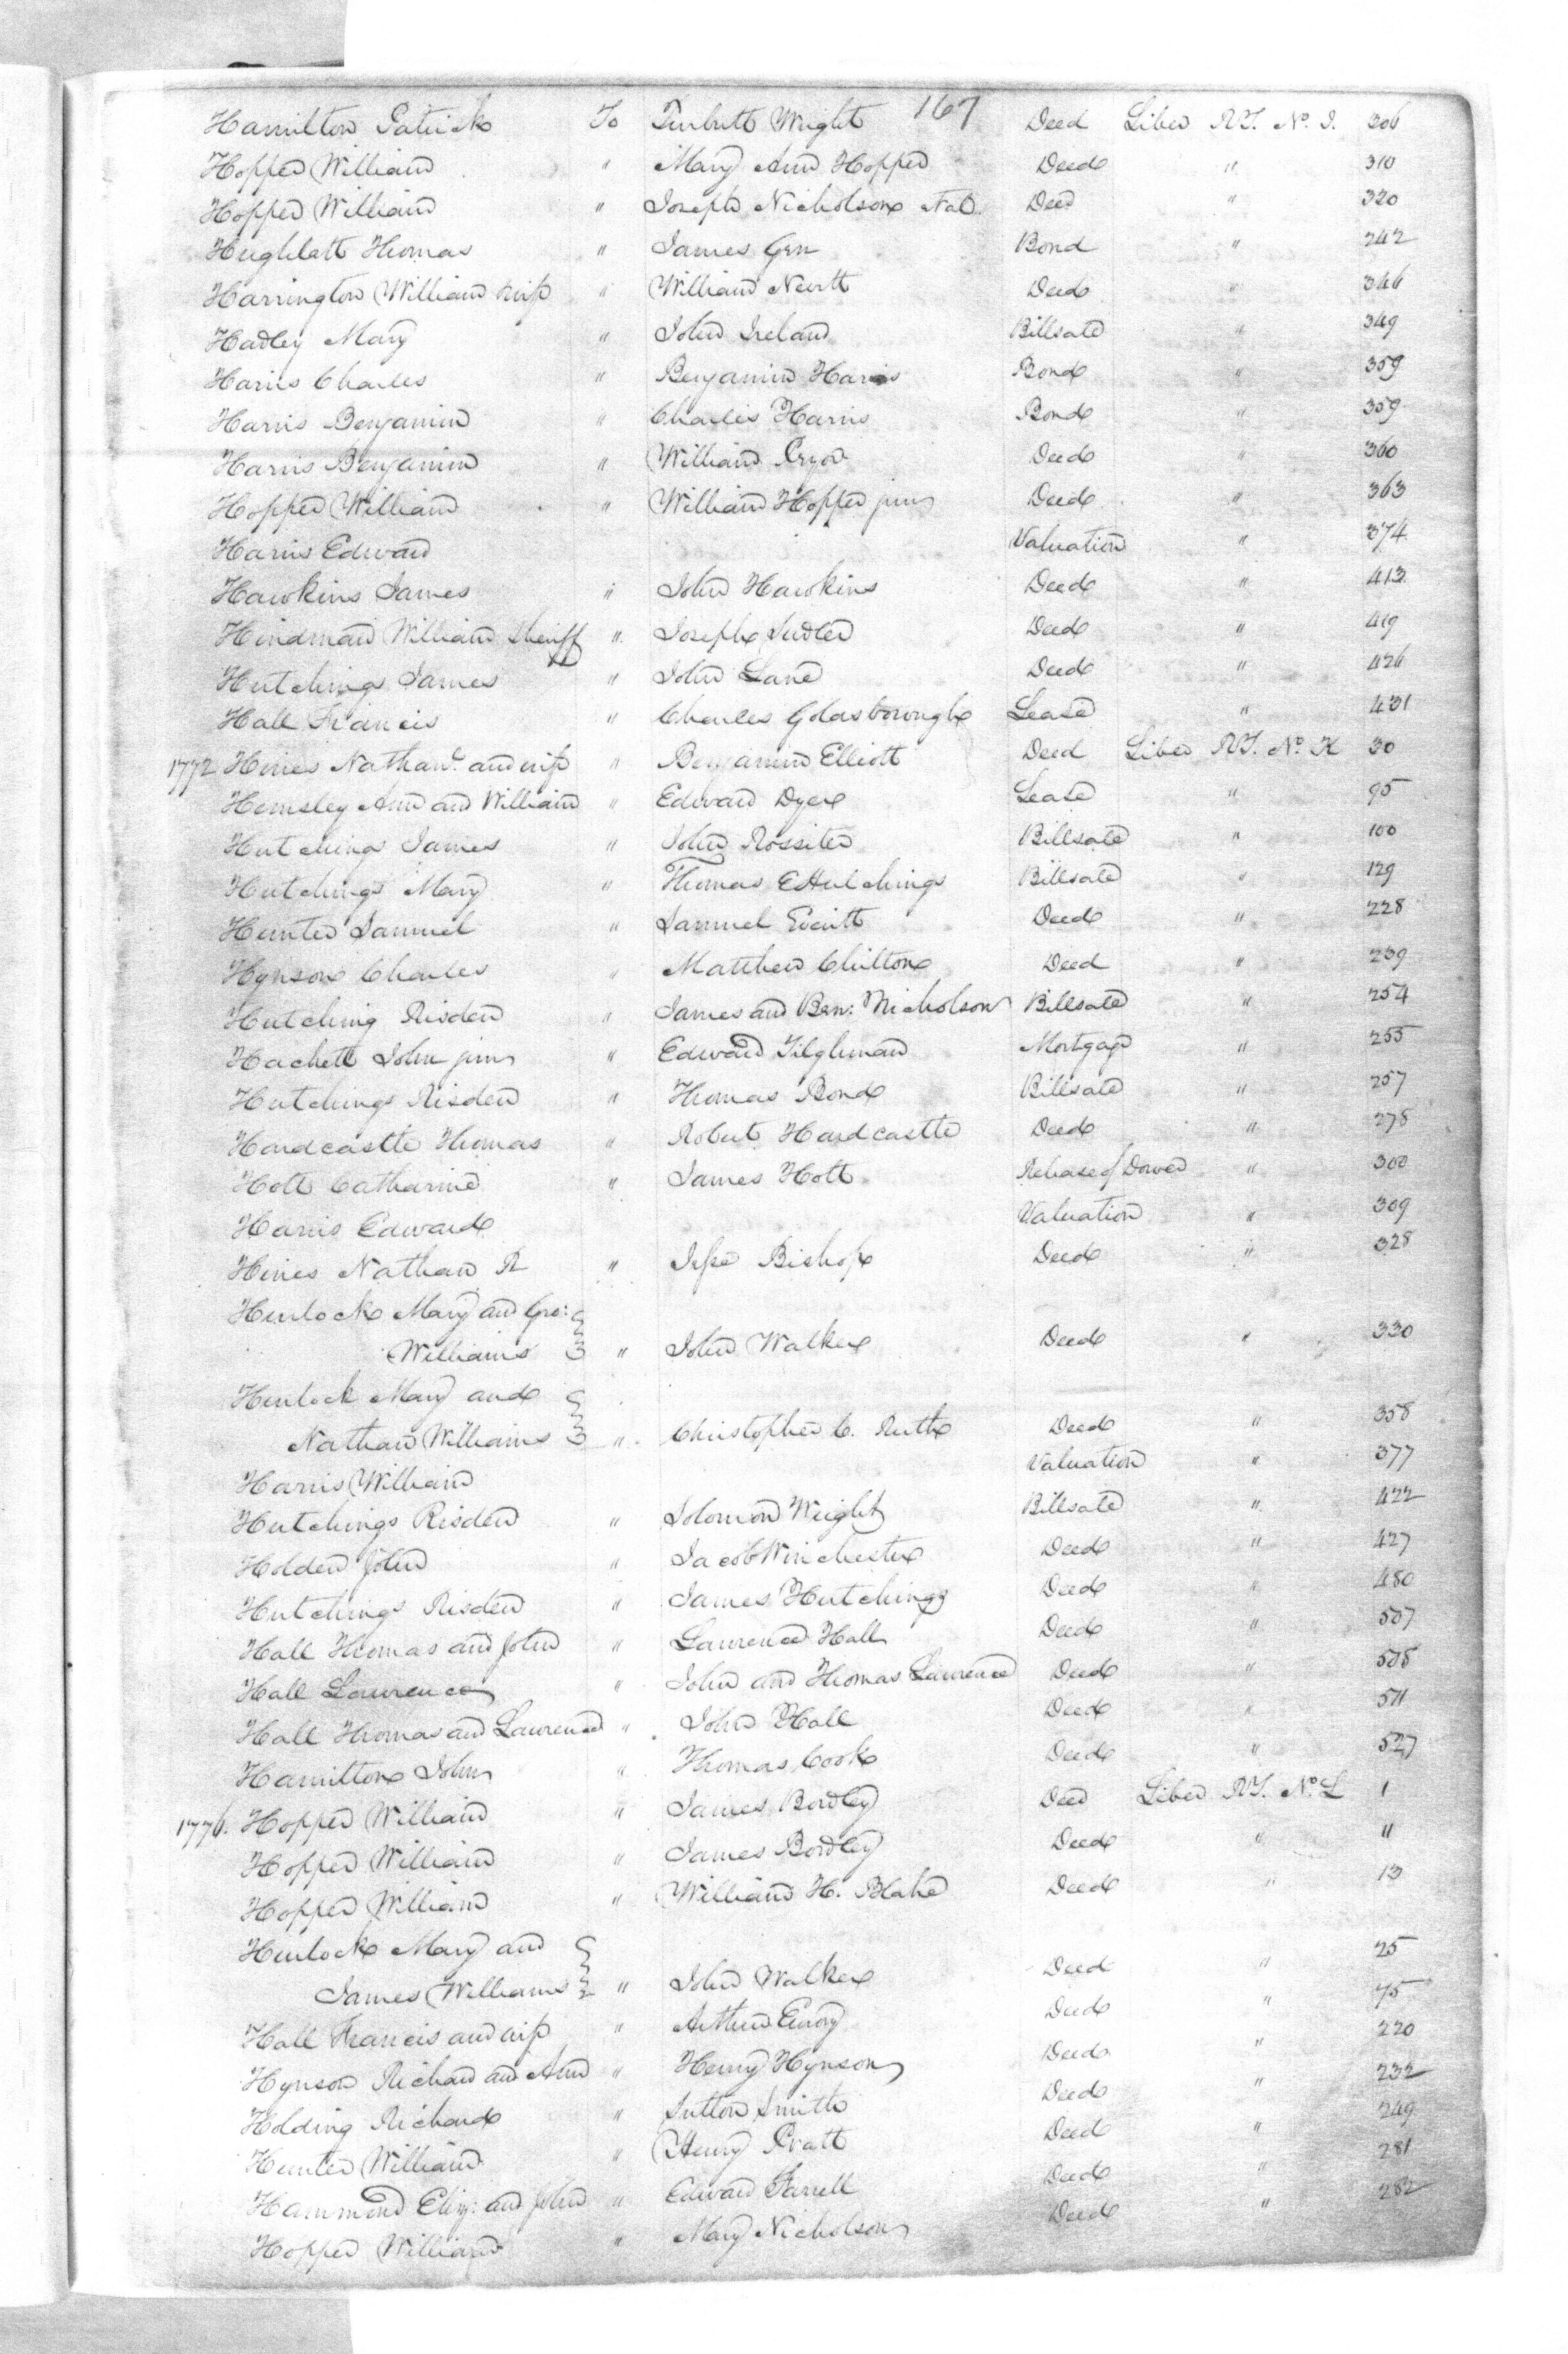 167
Hamilton Patrick To Turbutt Wright Deed Liber R.T. No. I. 306
Hopper William " Mary Ann Hopper Deed " 310
Hopper William " Joseph Nicholson Deed " 320
Hughlett Thomas " James Bond " 242
Harrington William " William Deed " 346
Hadley Mary " John Ireland Billsale " 349
Harris Charles " Benjamin Harris Bond " 359
Harris Benjamin " Charles Harris Bond " 359
Harris Benjamin " William Pryor Deed " 360
Hopper William " William Hopper junr Deed " 363
Harris Edward Valuation " 374
Hawkins James " John Hawkins Deed " 413
Hindman William Sheriff " Joseph Sudler Deed " 419
Hutchings James " John Lane Deed " 426
Hall Francis " Charles Goldsborough Lease " 431
1772 Hines Nathanl. and wife " Benjamin Elliott Deed Liber R.T. No. K 30
Hemsley Ann and William " Edward Dyer Lease " 95
Hutchings James " John Rossiter Billsale " 100
Hutchings Mary " Thomas E Hutchings Billsale " 129
Hunter Samuel " Samuel Deed " 228
Hynson Charles " Matthew Chilton Deed " 239
Hutching Risden " James and Ben: Nicholson Billsale " 254
Hachett John junr " Edward Tilghman Mortgage " 255
Hutchings Risden " Thomas Bond Billsale " 257
Hardcastle Thomas " Robert Hardcastle Deed " 278
Holt Catharine " James Holt Release of Dower " 300
Harris Edward Valuation " 309
Hines Nathan R " Jesse Bishop Deed " 328
Hurlock Mary and Geo:
Williams " John Walker Deed " 330
Hurlock Mary and
Nathan Williams " Christopher C. Ruth Deed " 358
Harris William Valuation " 377
Hutchings Risden " Solomon Wright Billsale " 422
Holden John " Jacob Winchester Deed " 427
Hutchings Risden " James Hutchings Deed " 480
Hall Thomas and John " Laurence Hall Deed " 507
Hall Laurence " John and Thomas Laurence Deed " 508
Hall Thomas and Laurence " John Hall Deed " 511
Hamilton John " Thomas Cook Deed " 527
1776. Hopper William " James Bordley Deed Liber R.T. No. L 1
Hopper William " James Bordley Deed " 11
Hopper William " William H. Blake Deed " 13
Hurlock Mary and
James Williams " John Walker Deed " 25
Hall Francis and wife " Arthur Emory Deed " 75
Hynson Richard and Ann " Henry Hynson Deed " 220
Holding Richard " Sutton Smith Deed " 232
Hunter William " Henry Pratt Deed " 249
Hammond Eliz: and John " Edward Farrell Deed " 281
Hopper William " Mary Nicholson Deed " 282